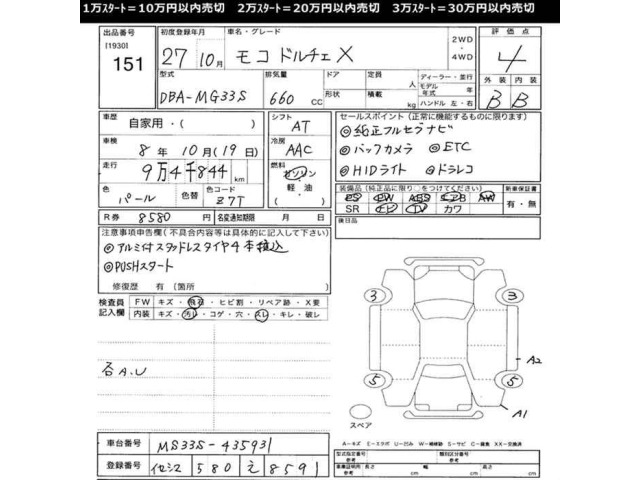 1万スタート=10万円以内売切 2万スタート=20万円以内売切 3万スタート=30万円以内売切
出品番号 初度登録年月 車名・グレード 2WD・4WD 評価点
[1930] 151 27年 10月 モコ ドルチェX 4
型式 排気量 ドア 定員 人 ディーラー・並行 外装 内装
DBA-MG33S 660 CC 形状 積載 kg モデル年式 年 ハンドル 左・右 B B
車歴 自家用・( ) シフト AT セールスポイント(正常に機能するものに限ります)
車検 8年 10月(19日) 冷房 AAC
◎純正フルセグナビ
◎バックカメラ ◎ETC
◎HIDライト ◎ドラレコ
走行 9万4千844km 燃料 ガソリン・軽油・( )
色 パール 色コード Z7T
装備品(純正品に限り○をつけてください) 新車保証書
PS PW ABS エアB AW 有・無
SR ナビ TV カワ
R券 8580 円 名変通知期限 月 日
後日品
注意事項申告欄(不具合内容等は具体的に記入して下さい)
◎アルミ付スタッドレスタイヤ4本積込
◎PUSHスタート
修復歴 有(箇所 )
検査員記入欄 FW キズ・飛石・ヒビ割・リペア跡・X要
内装 キズ・汚レ・コゲ・穴・スレ・キレ・破レ
各A.U
3 3
5 5
A2
A1
スペア
A-キズ E-エクボ U-凹み W-補修跡 S-サビ C-腐食 XX-交換済
車台番号 MS33S-435931
型式指定番号 参考 類別区分番号 参考
登録番号 イセシマ 580 え 8591
車庫証明用 参考 長さ cm 幅 cm 高さ cm